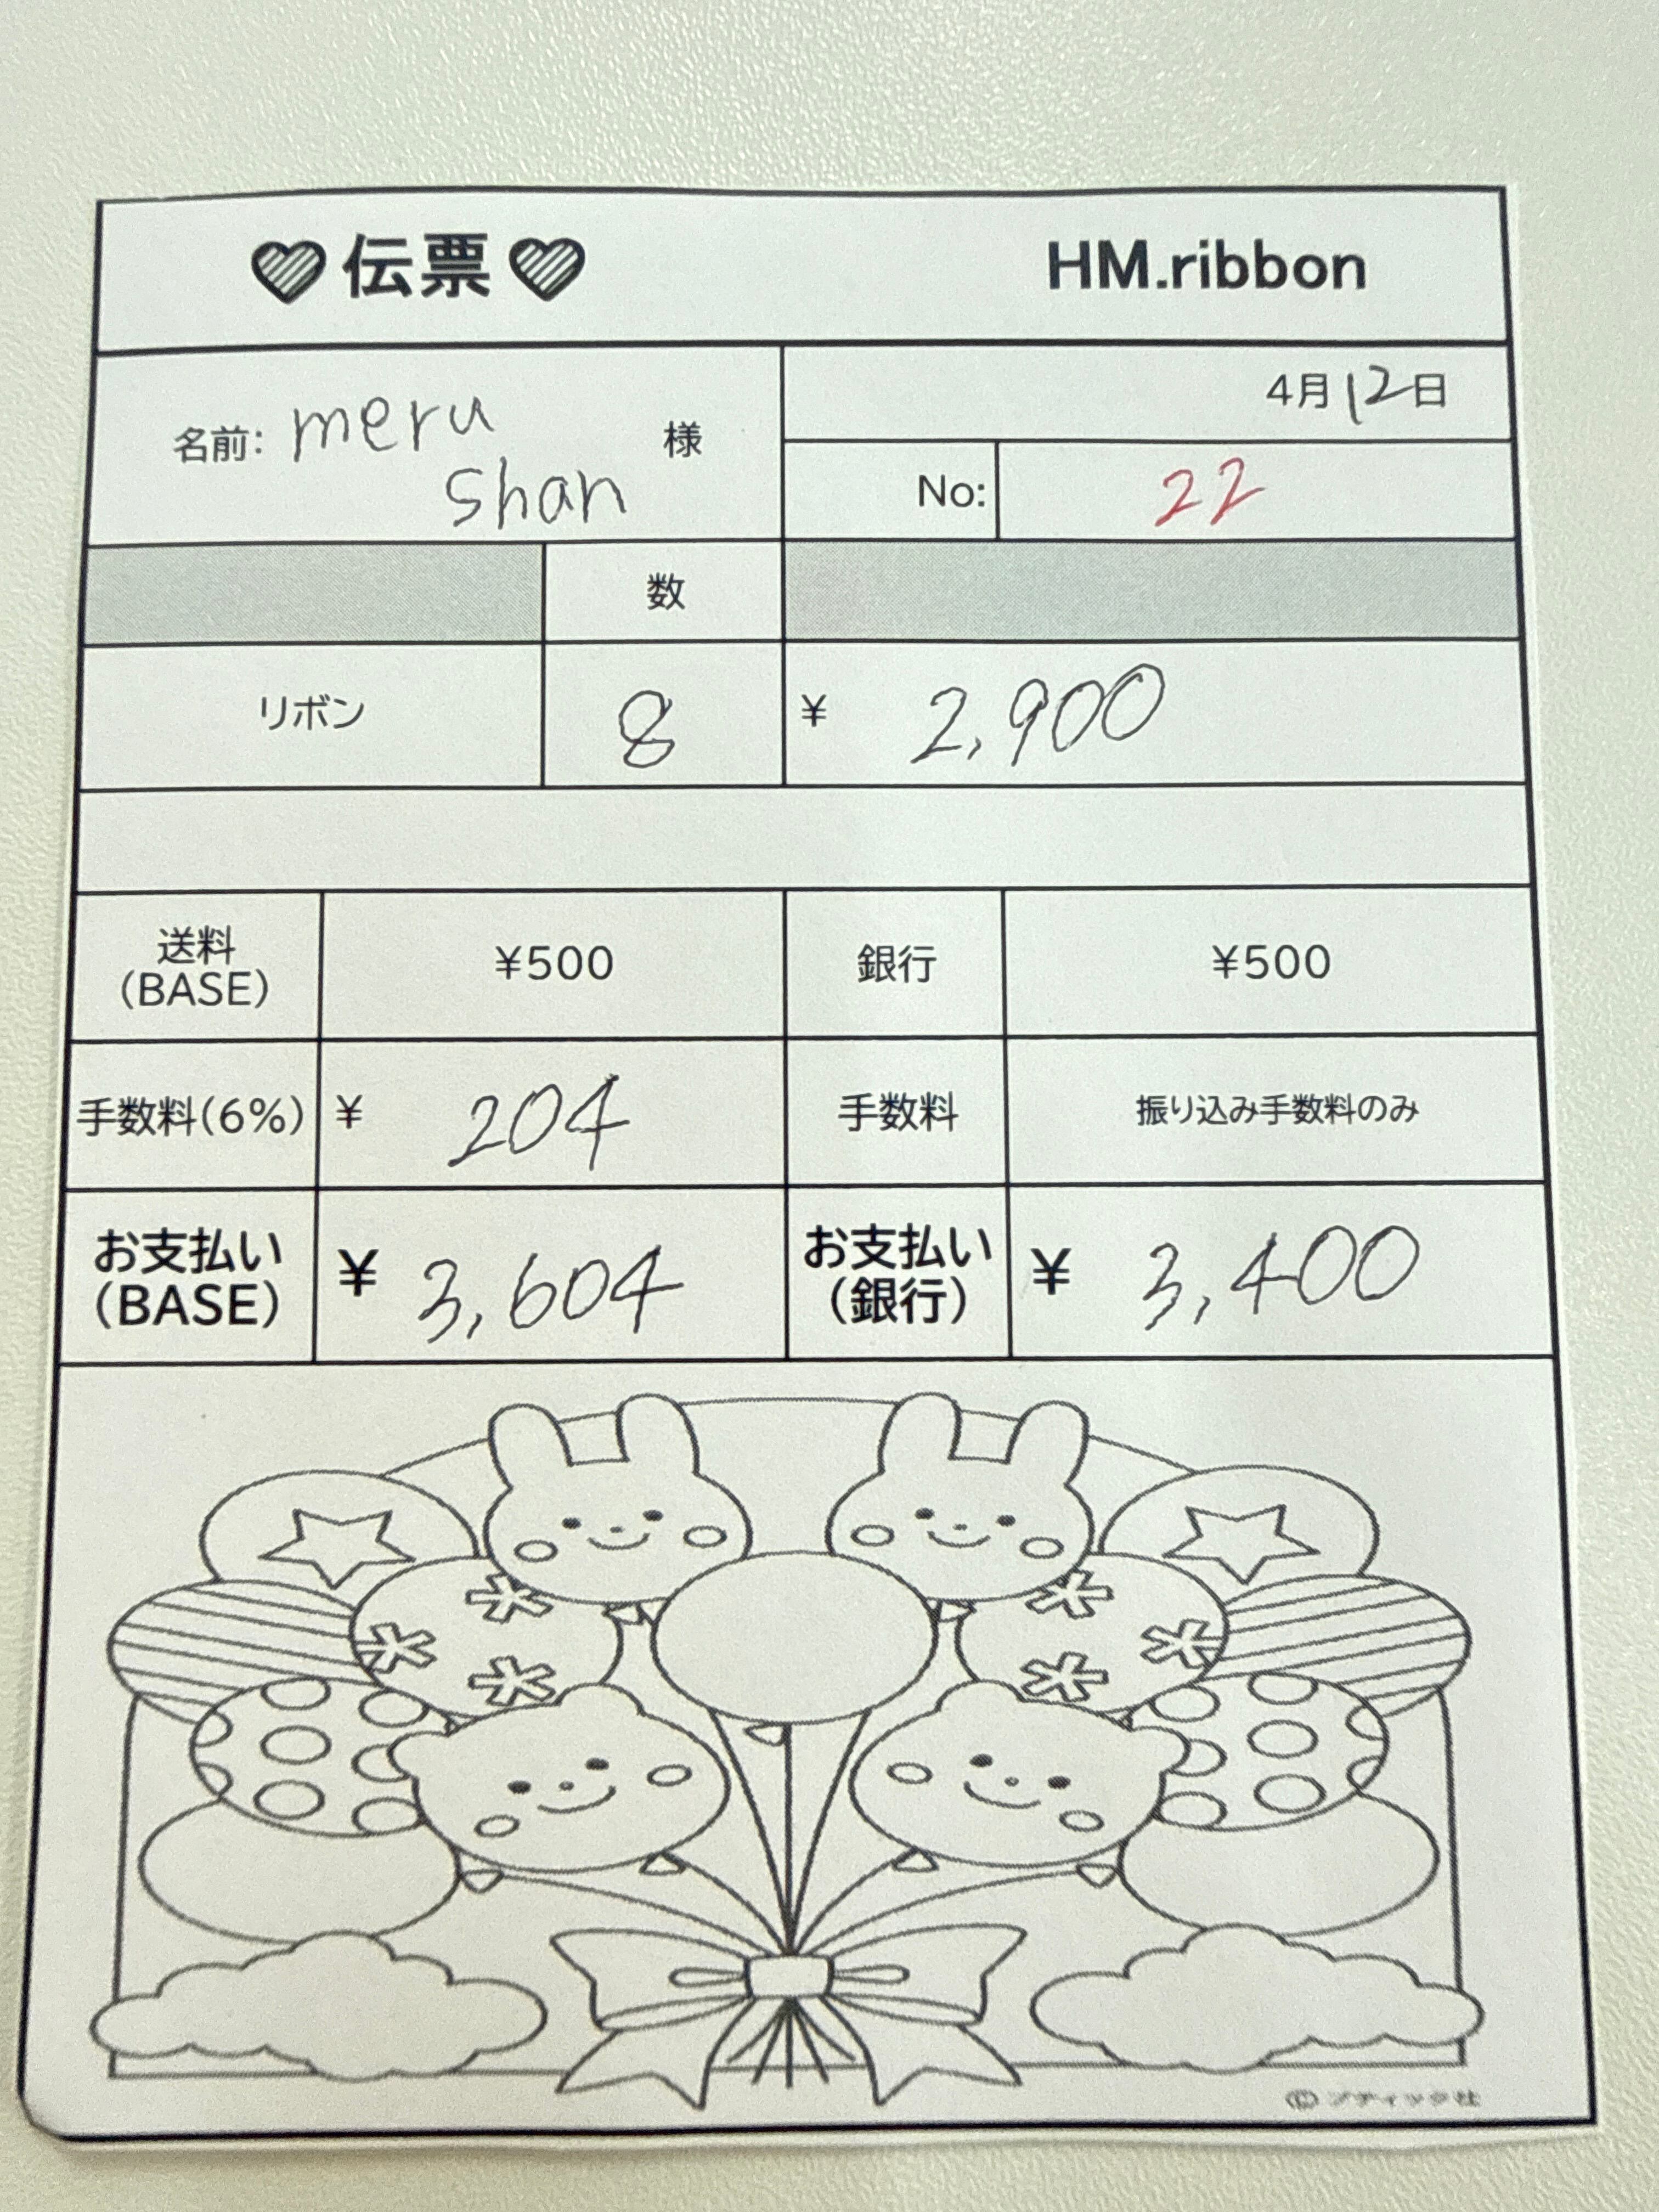 伝票 HM.ribbon
名前: meru shan 様
4月12日
No: 22
数
リボン 8 ¥ 2,900
送料(BASE) ¥500 銀行 ¥500
手数料(6%) ¥ 204 手数料 振り込み手数料のみ
お支払い(BASE) ¥ 3,604 お支払い(銀行) ¥ 3,400